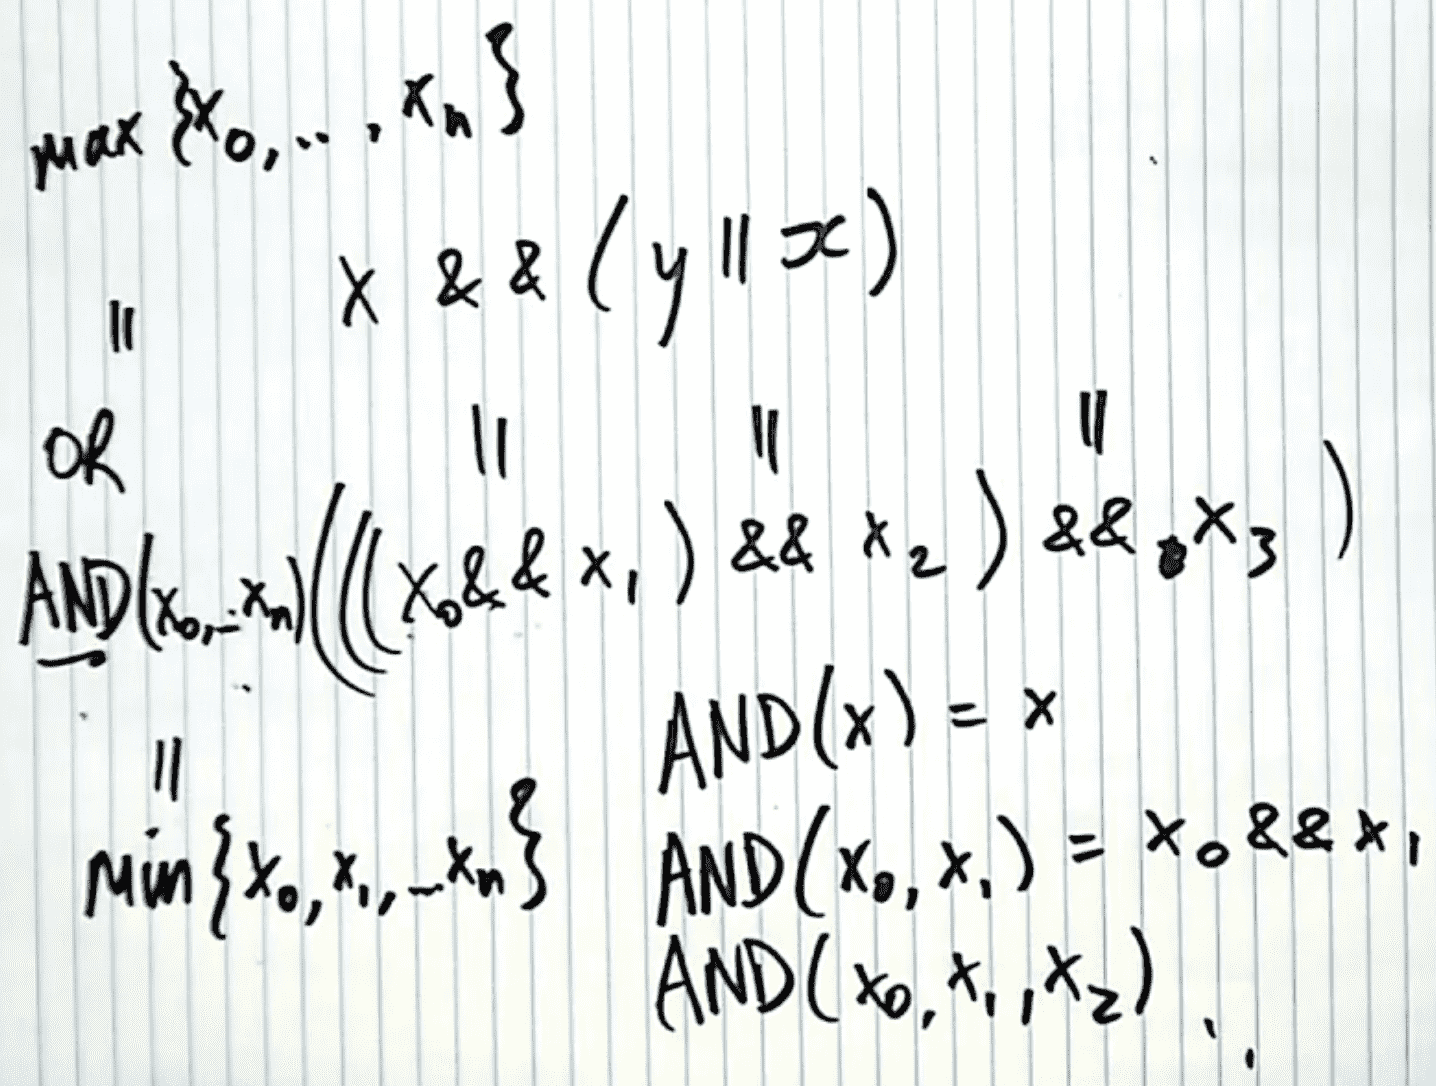 max {x₀, .. , xₙ}
x && (y || x)
||
OR || || ||
AND(x₀,_xₙ)(((x₀ && x₁) && x₂) && x₃)
AND(x) = x
||
min {x₀, x₁, _xₙ}
AND(x₀, x₁) = x₀ && x₁
AND(x₀, x₁, x₂)